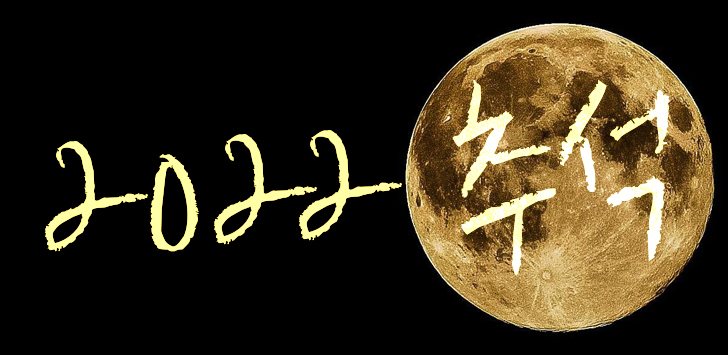 2022 추석